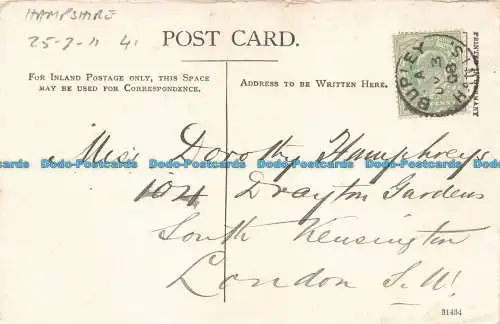 HAMPSHIRE
25-7-11 41
POST CARD.
FOR INLAND POSTAGE ONLY, THIS SPACE
MAY BE USED FOR CORRESPONDENCE.
ADDRESS TO BE WRITTEN HERE.
BURLEY
08
Miss Dorothy Humphreys
Dodo-Postcards Dodo-Postcards Dodo-Postcards Dodo-Postcards
104 Drayton Gardens
South Kensington
London S.W.
31434